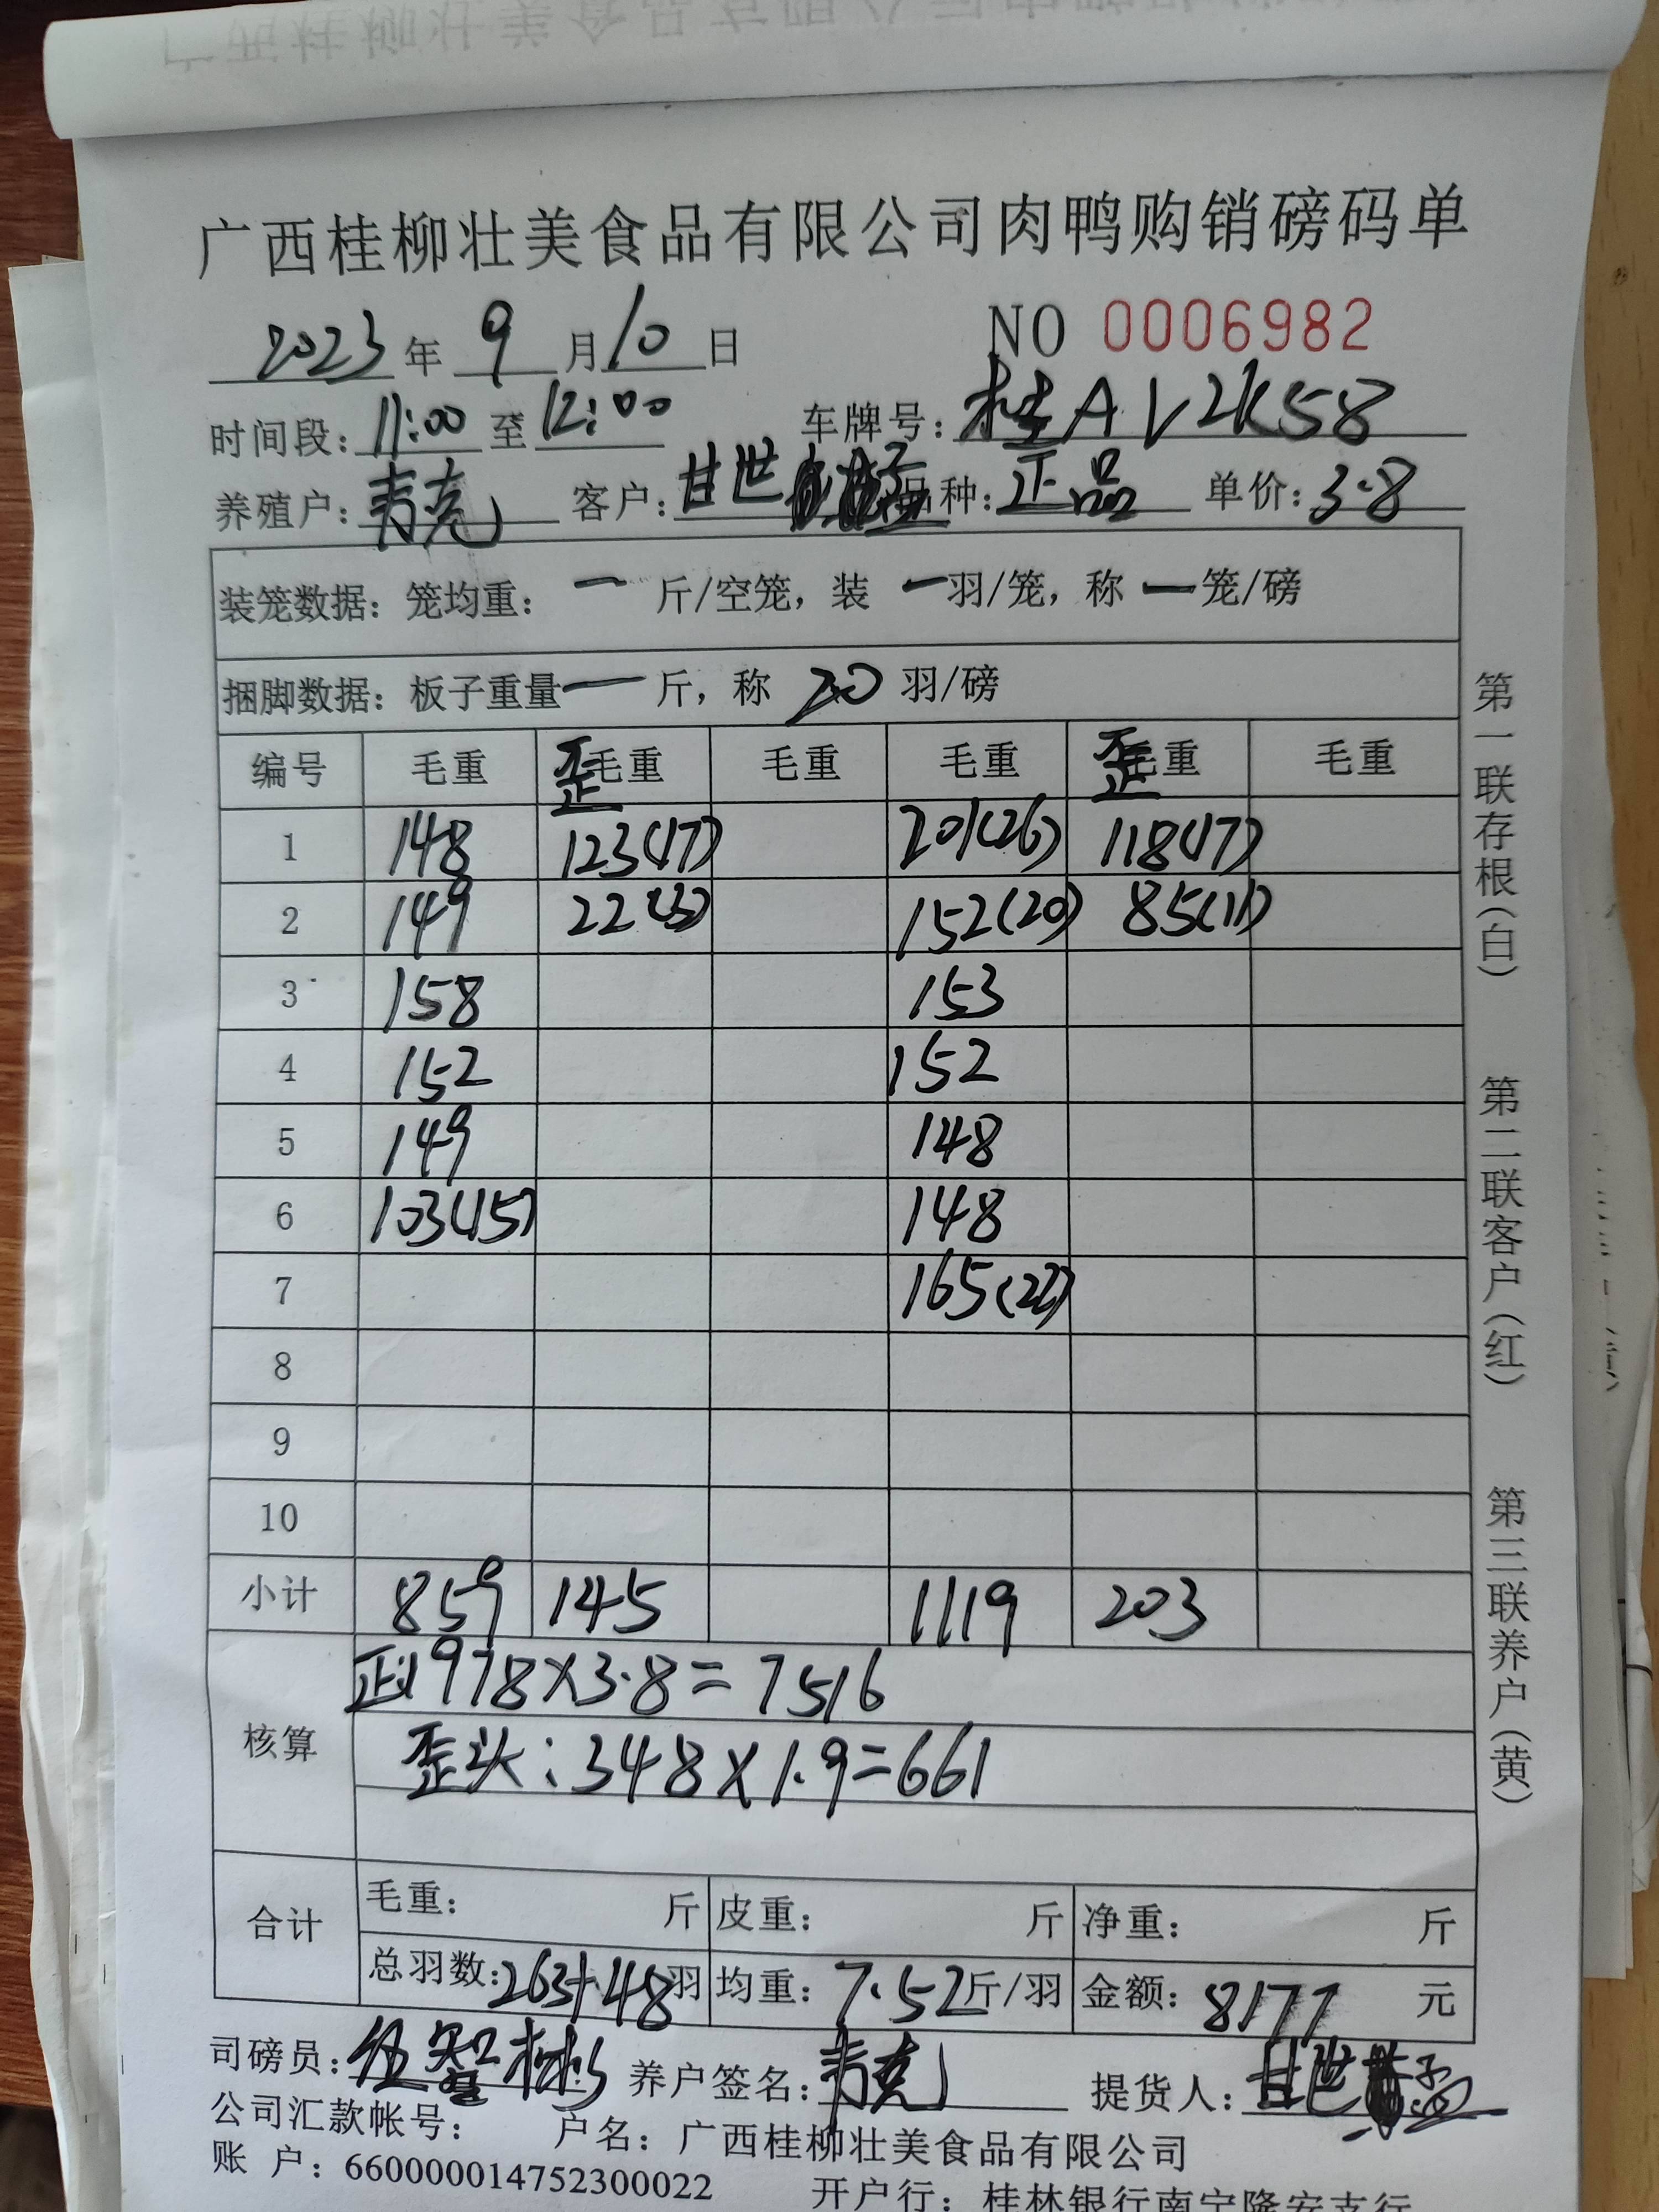 广西桂柳壮美食品有限公司肉鸭购销磅码单
2023年 9月10日 NO 0006982
时间段: 11:00 至 12:00 车牌号: 桂AV2K58
养殖户: 韦克 客户: 甘世 品种: 正品 单价: 3.8
装笼数据: 笼均重: 一 斤/空笼, 装 一羽/笼, 称 一笼/磅
捆脚数据: 板子重量 一 斤, 称 20 羽/磅
编号 毛重 歪毛重 毛重 毛重 歪毛重 毛重
1 148 123(17) 201(26) 118(17)
2 149 22(3) 152(20) 85(11)
3 158 153
4 152 152
5 149 148
6 103(15) 148
7 165(22)
8
9
10
小计 859 145 1119 203
核算
正1978×3.8=7516
歪头:348×1.9=661
合计
毛重: 斤 皮重: 斤 净重: 斤
总羽数: 263+48羽 均重: 7.52斤/羽 金额: 8177 元
司磅员: 伍智彬 养户签名: 韦克 提货人: 甘世
公司汇款帐号: 户名: 广西桂柳壮美食品有限公司
账 户: 660000014752300022 开户行: 桂林银行南宁隆安支行
第一联存根(白)
第二联客户(红)
第三联养户(黄)